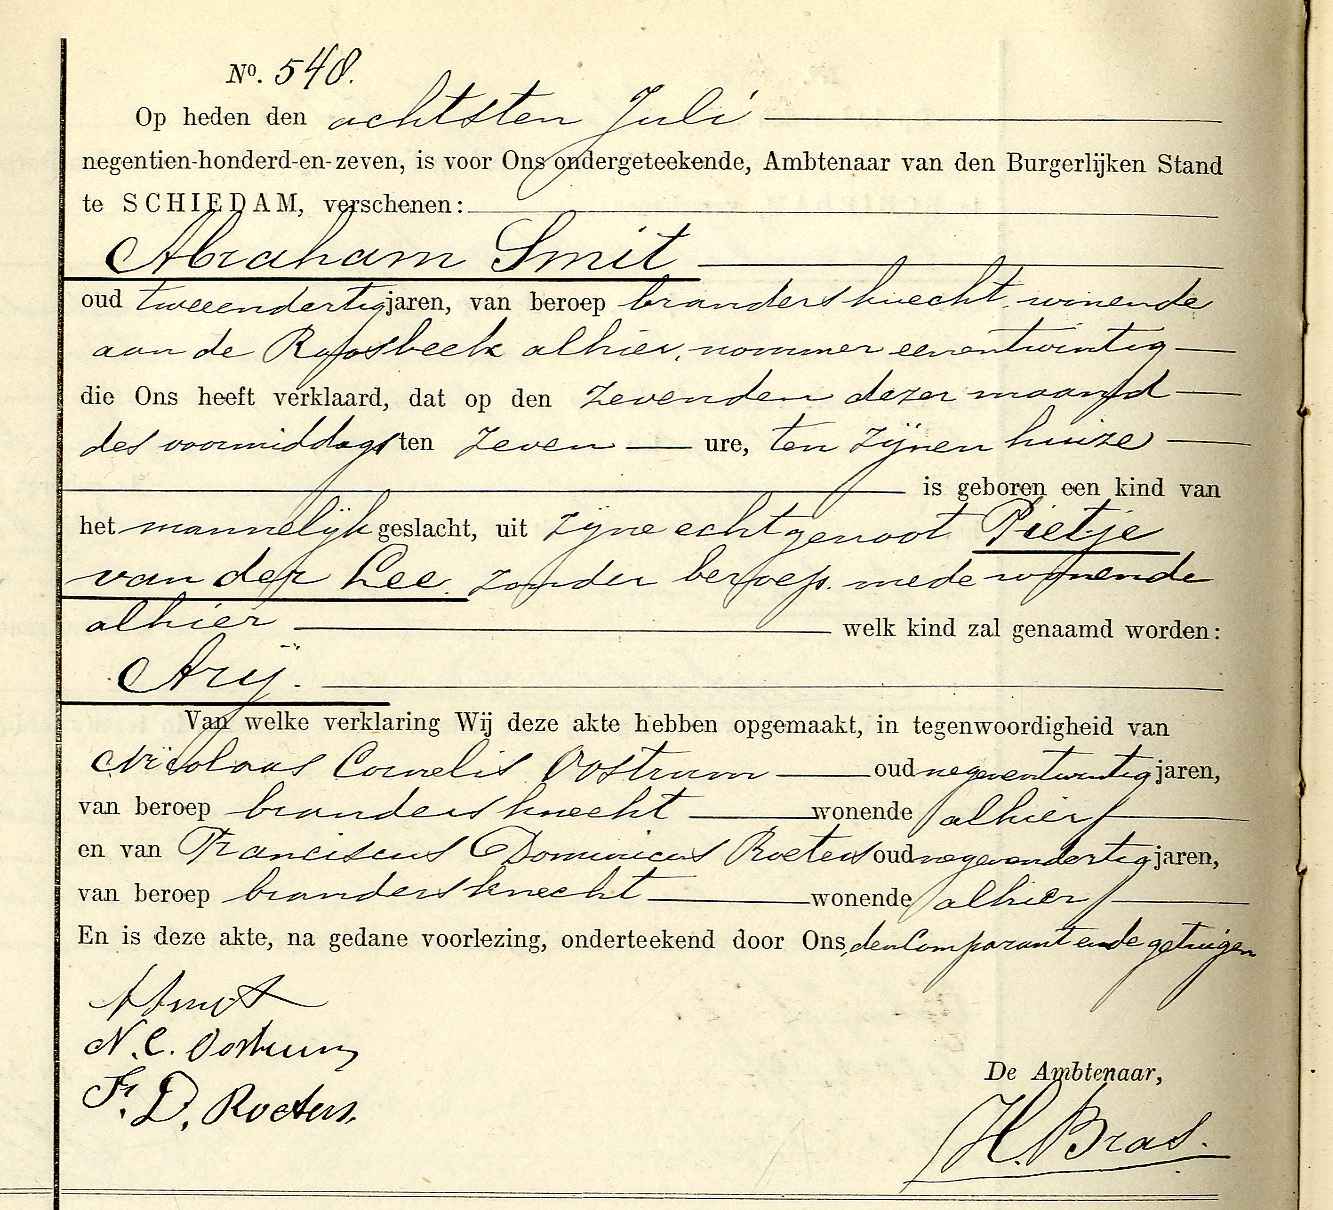 No. 548.
Op heden den achtsten Juli
negentien-honderd-en-zeven, is voor Ons ondergeteekende, Ambtenaar van den Burgerlijken Stand
te SCHIEDAM, verschenen:
Abraham Smit
oud tweeendertig jaren, van beroep brandersknecht, wonende
aan de Roosbeek alhier, nommer eenentwintig
die Ons heeft verklaard, dat op den zevenden dezer maand
des voormiddags ten zeven ure, ten zijnen huize
is geboren een kind van
het mannelijk geslacht, uit zijne echtgenoot Pietje
van der Lee, zonder beroep, mede wonende
alhier welk kind zal genaamd worden:
Arij.
Van welke verklaring Wij deze akte hebben opgemaakt, in tegenwoordigheid van
Nicolaas Cornelis Oostrum oud negenentwintig jaren,
van beroep brandersknecht wonende alhier
en van Franciscus Dominicus Roeters oud negenendertig jaren,
van beroep brandersknecht wonende alhier
En is deze akte, na gedane voorlezing, onderteekend door Ons, den Comparant en de getuigen
A Smit
N. C. Oostrum
F. D. Roeters.
De Ambtenaar,
H. Bras.